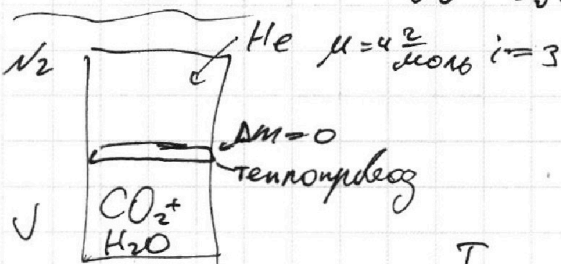 N2
He μ=4 г/моль i=3
Δm=0
теплопровод
V
CO2+
H2O
T